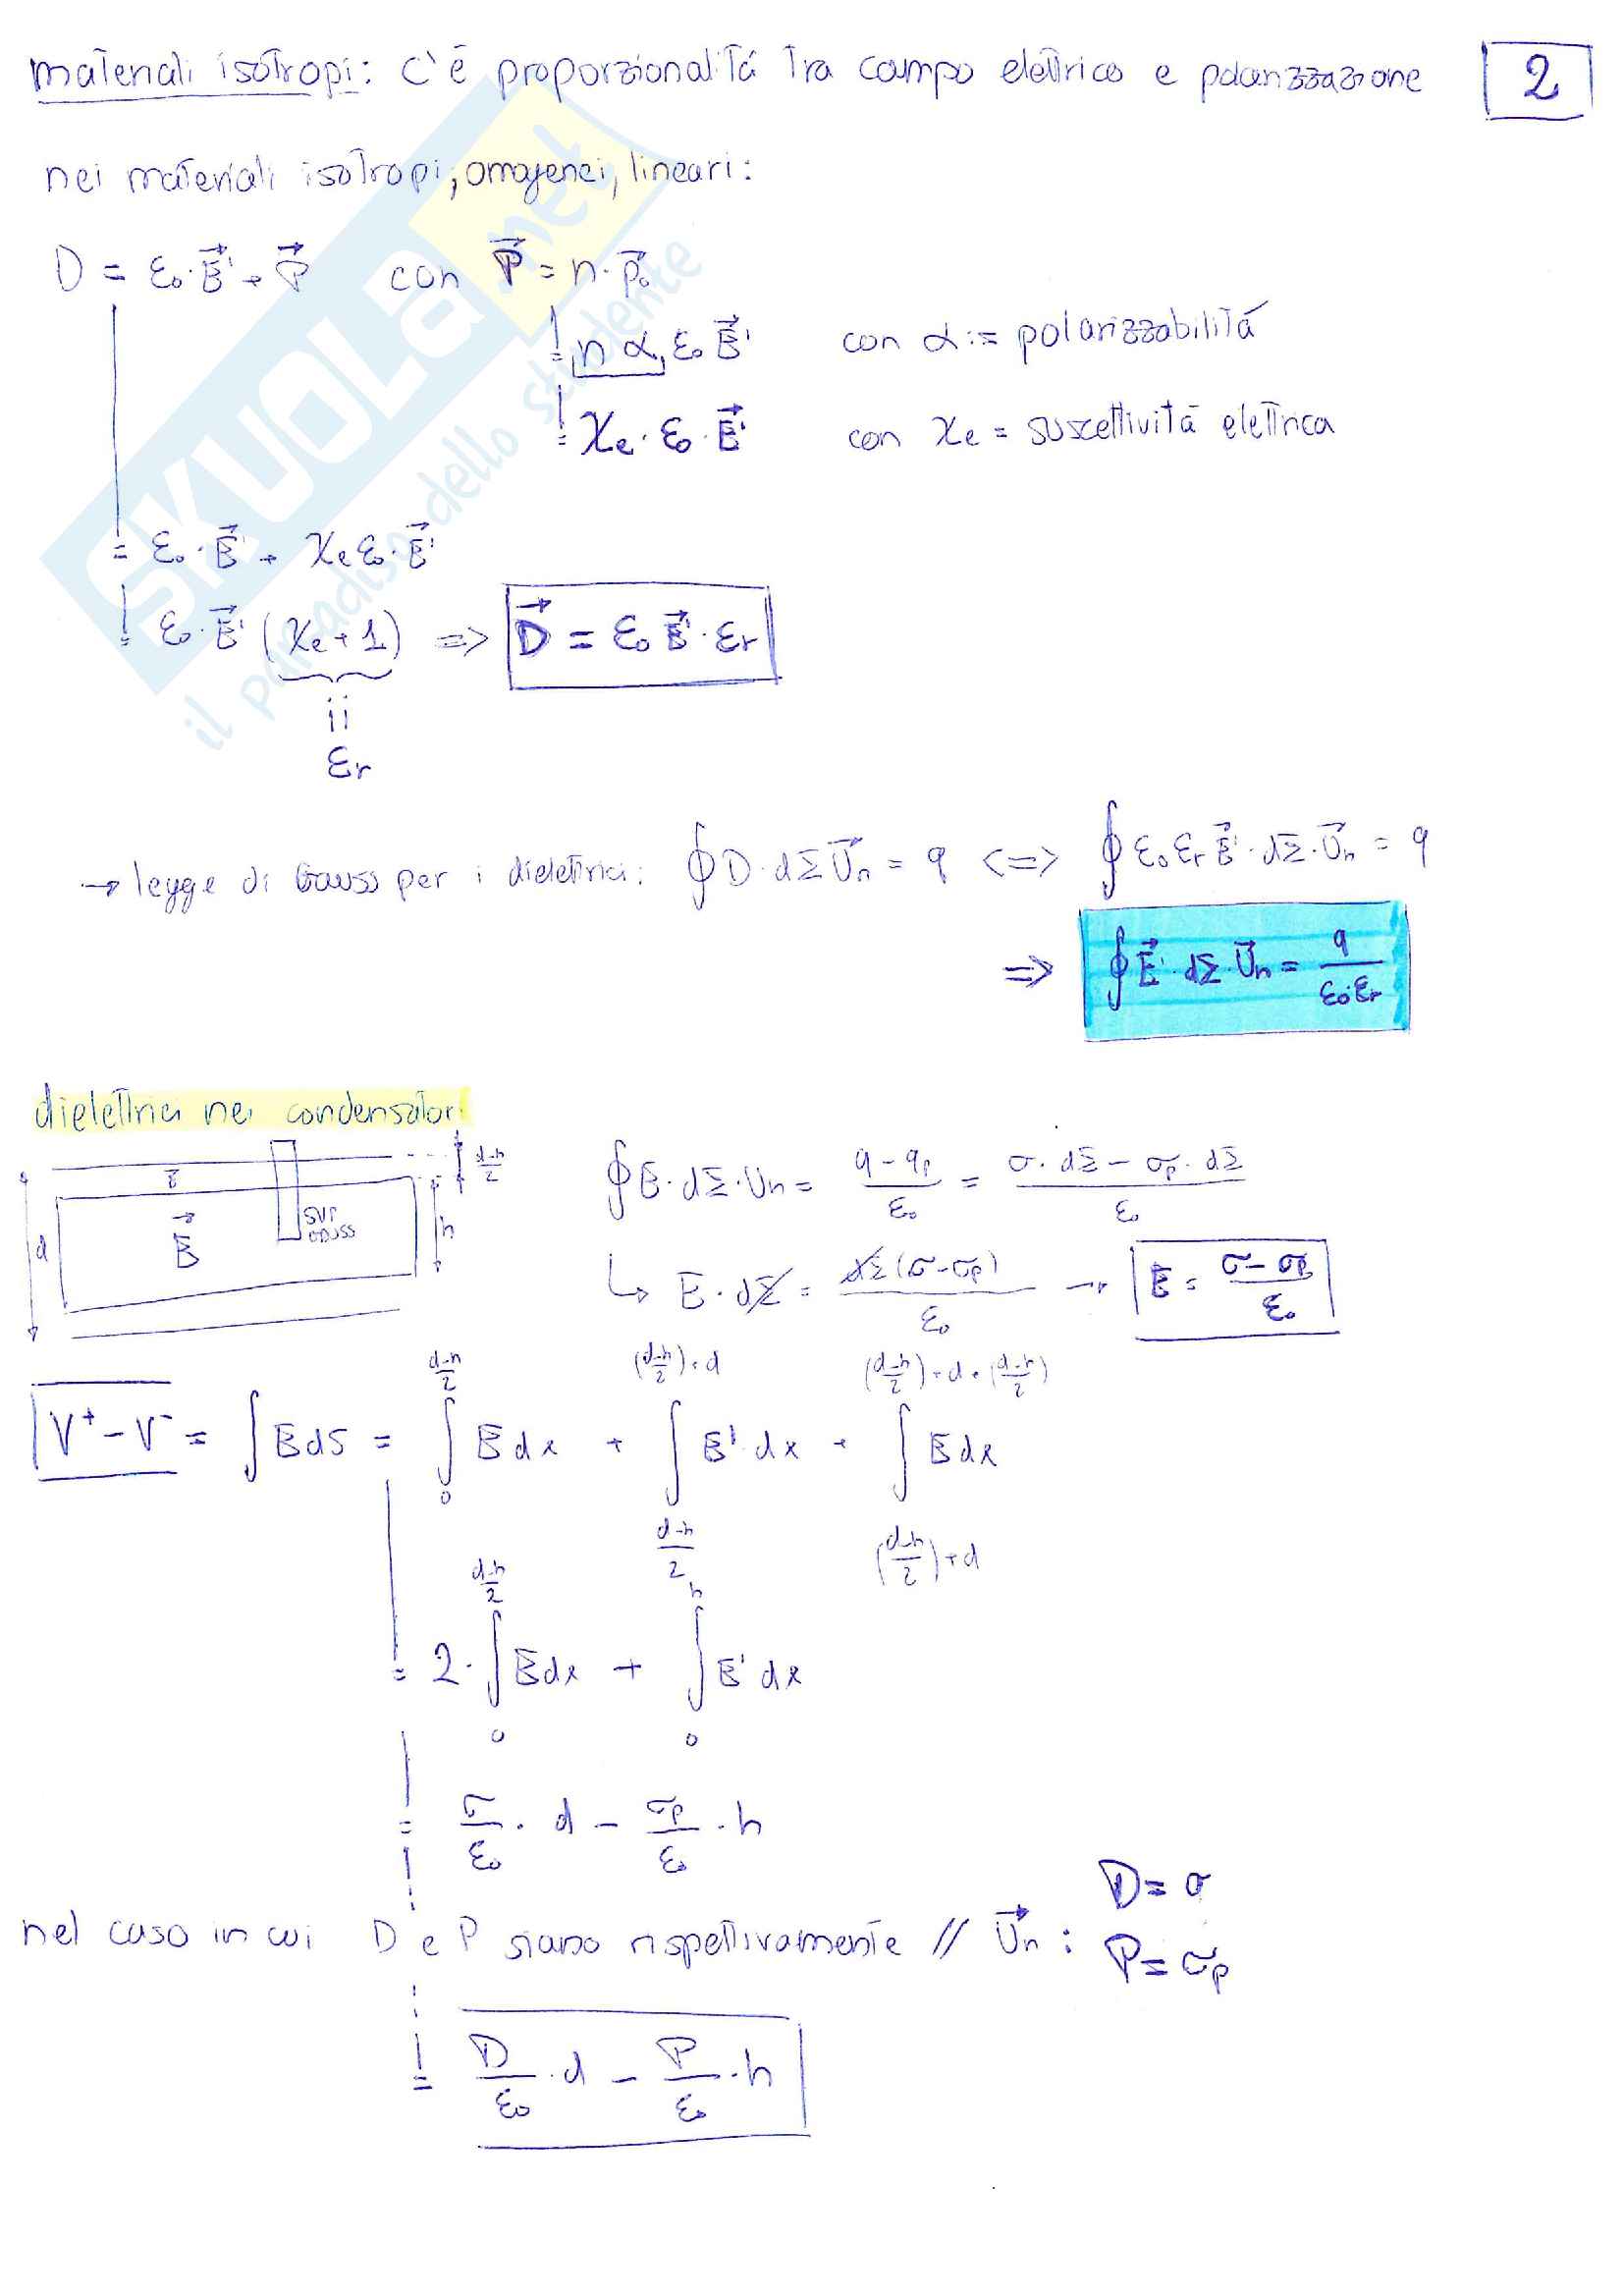 materiali isotropi: c'é proporzionalitá tra campo elettrico e polarizzazione
2
nei materiali isotropi, omogenei, lineari:
D = ε₀·E⃗' + P⃗ con P⃗ = n·p⃗₀
= n α ε₀ E⃗' con α := polarizzabilitá
= χe·ε₀·E⃗' con χe = suscettivitá elettrica
= ε₀·E⃗' + χe ε₀·E⃗'
= ε₀·E⃗' (χe+1) => D⃗ = ε₀ E⃗'·εr
ii
εr
→ legge di Gauss per i dielettrici: ∮D·dΣ U⃗n = q <=> ∮ε₀ εr E⃗'·dΣ·U⃗n = q
=> ∮E⃗' dΣ·U⃗n = q/(ε₀·εr)
dielettrici nei condensatori
d E⃗ E⃗ SUP GAUSS h (d-h)/2
∮E·dΣ·Un = (q-qp)/ε₀ = (σ·dΣ - σp·dΣ)/ε₀
↳ E·dΣ = dΣ(σ-σp)/ε₀ → E = (σ-σp)/ε₀
V⁺-V⁻ = ∫E dS = ∫₀^((d-h)/2) E dx + ∫_((d-h)/2)^(((d-h)/2)+d) E' dx + ∫_(((d-h)/2)+d)^(((d-h)/2)+d+((d-h)/2)) E dx
= 2·∫₀^((d-h)/2) E dx + ∫₀^h E' dx
= σ/ε₀ · d - σp/ε₀ · h
nel caso in cui D e P siano rispettivamente // U⃗n : D = σ
P = σp
= D/ε₀ · d - P/ε₀ · h
SKUOLA.net
il paradiso dello studente